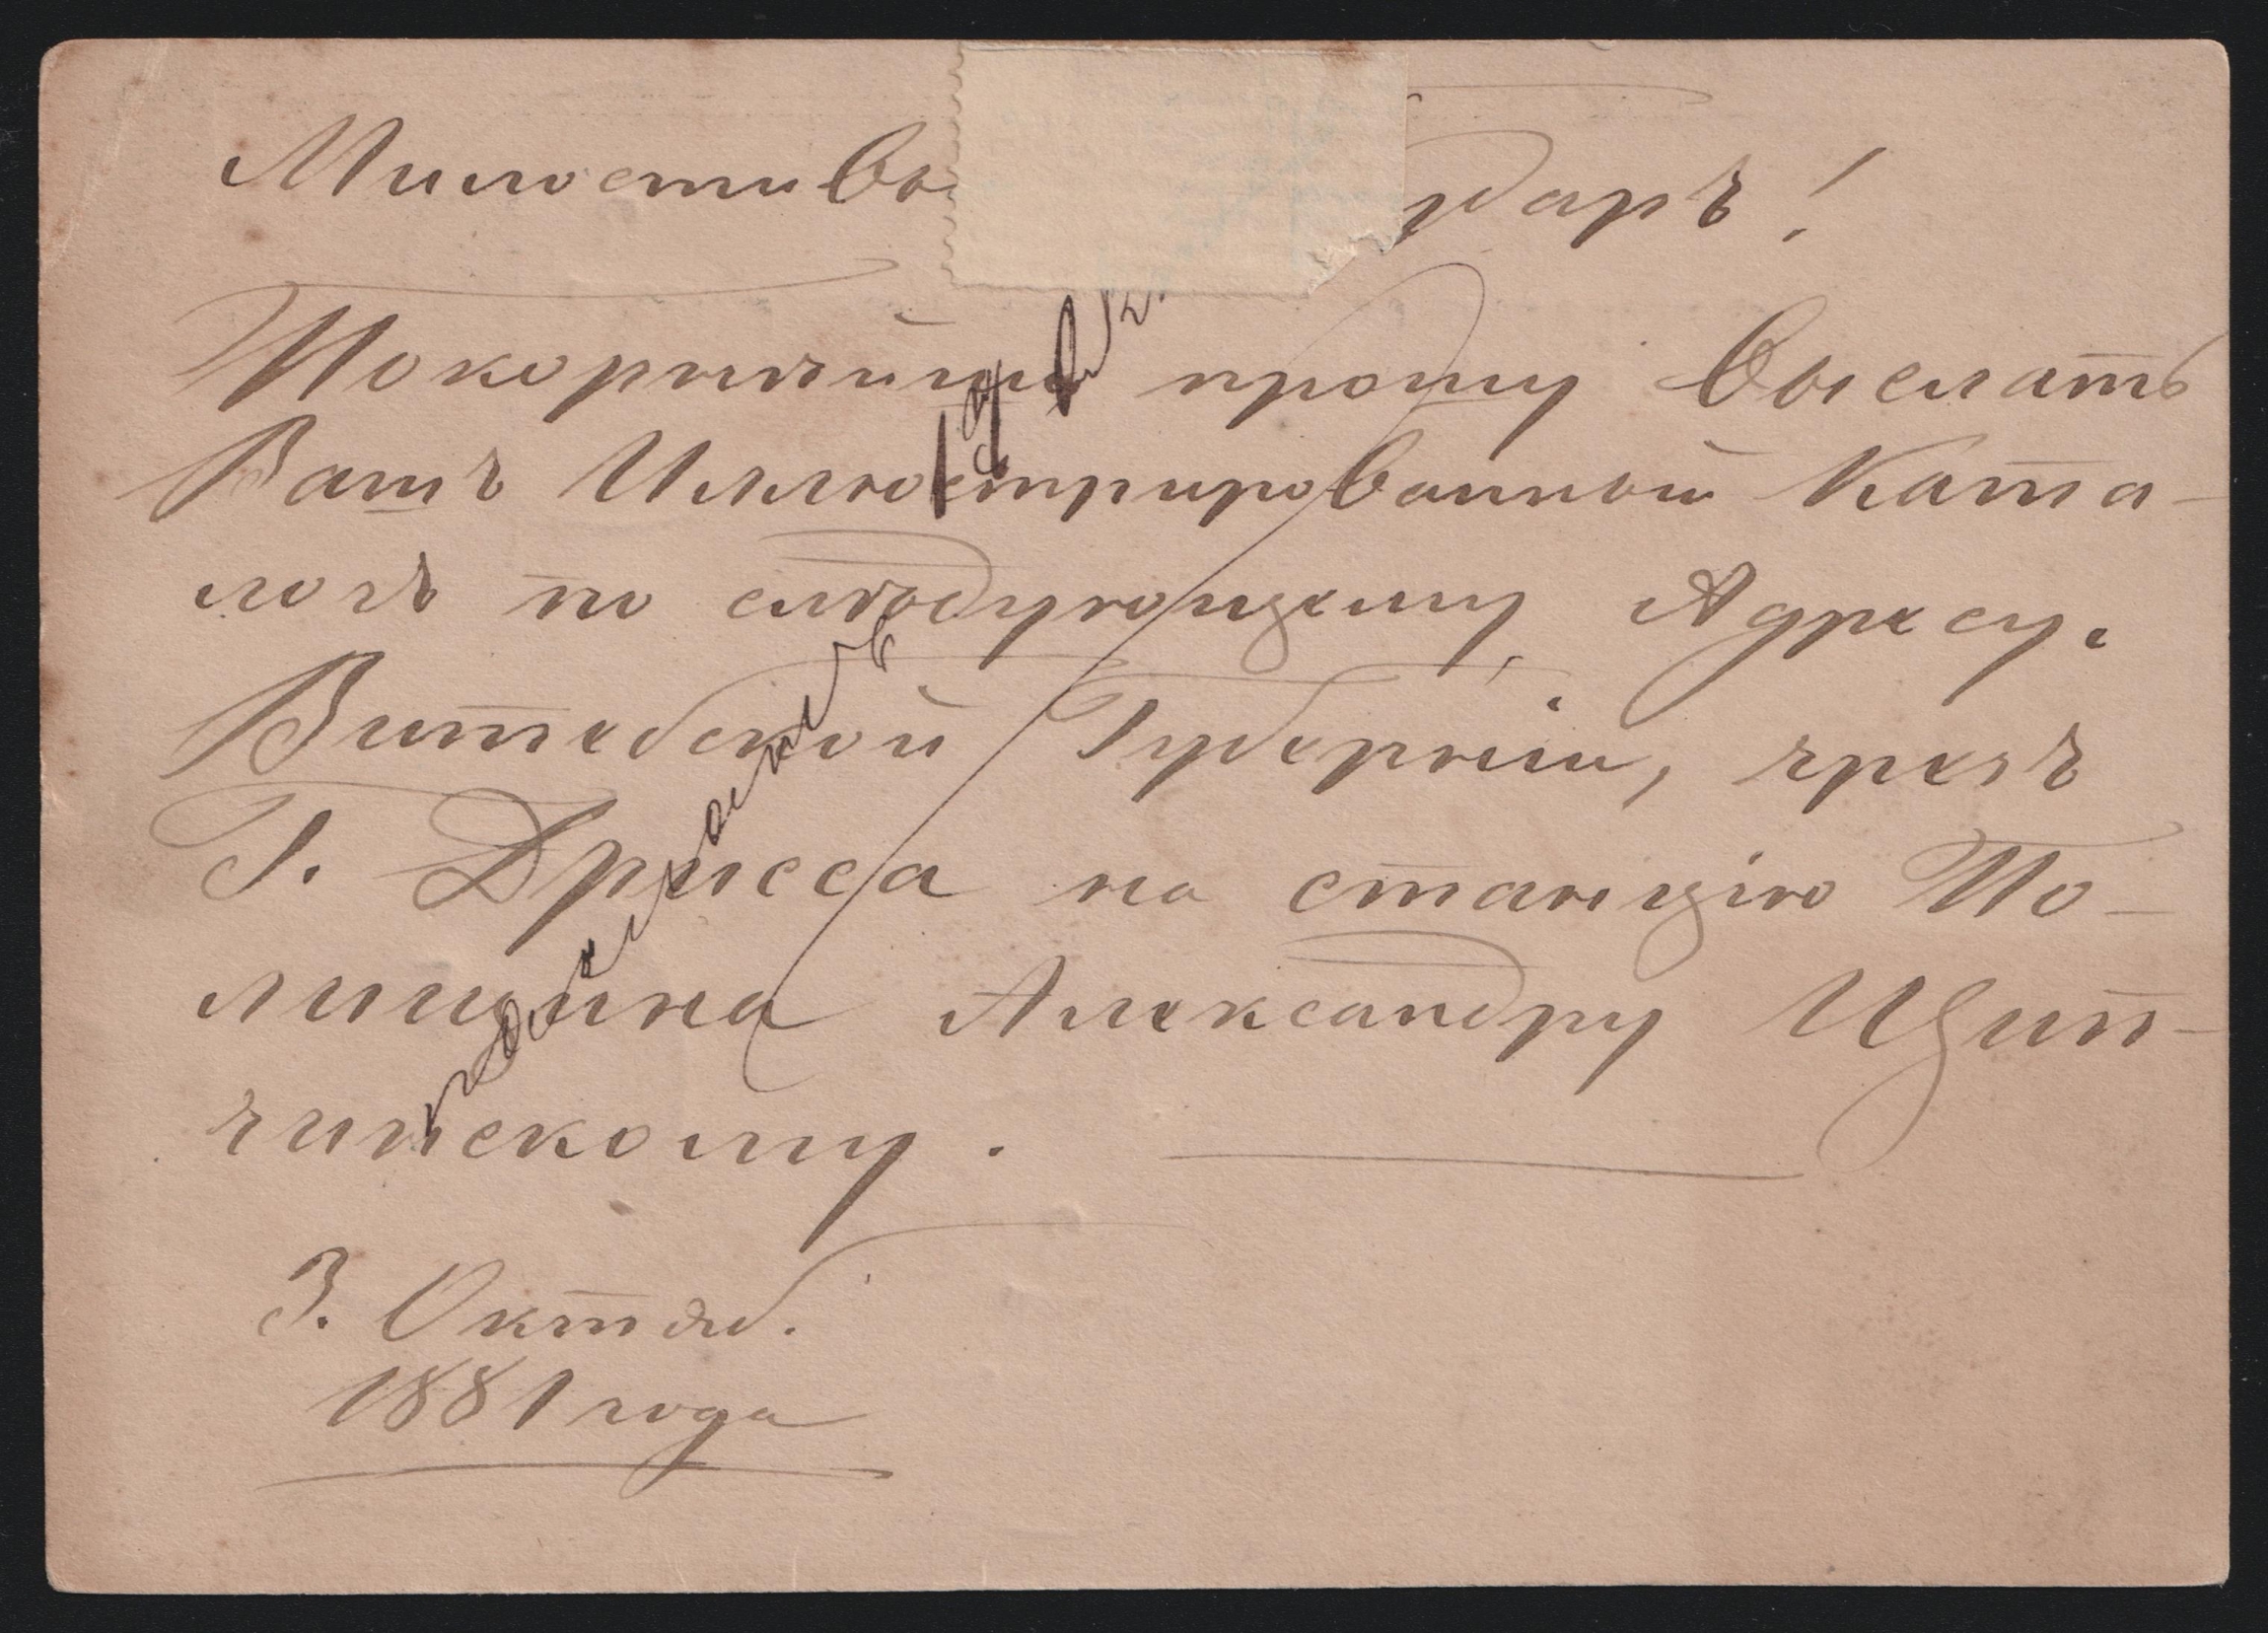 Милостивы дарь!
Покорнѣйше прошу выслать
Вашъ Иллюстрированный Ката-
логъ по слѣдующему Адресу.
Витебской Губерніи, чрезъ
Г. Дрисса на станцію По-
лищина Александру Цип-
чинскому.
3. Октяб.
1881 года